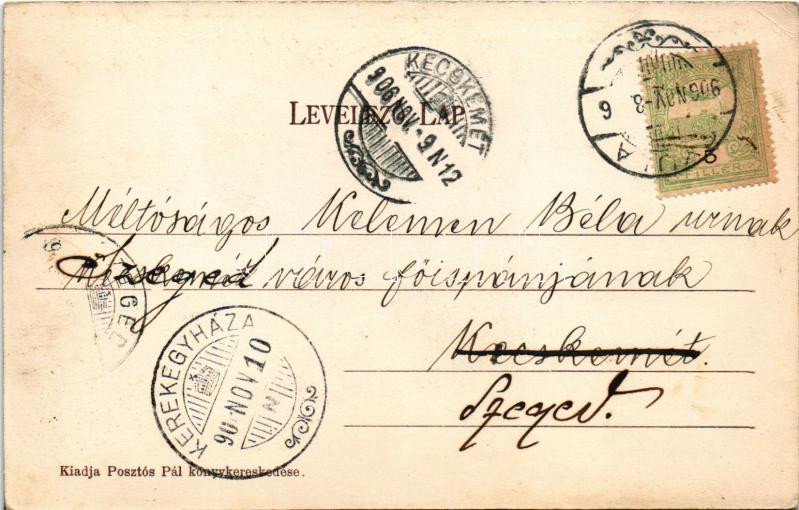 KECSKEMÉT
906 NOV.-9 N12
906 NOV.-8
6
5
FILLÉR
LEVELEZŐ LAP
Méltóságos Kelemen Béla urnak
Szeged város főispánjának
Kecskemét.
Szeged.
SZEGED
KEREKEGYHÁZA
90 NOV 10
N
Kiadja Posztós Pál könyvkereskedése.